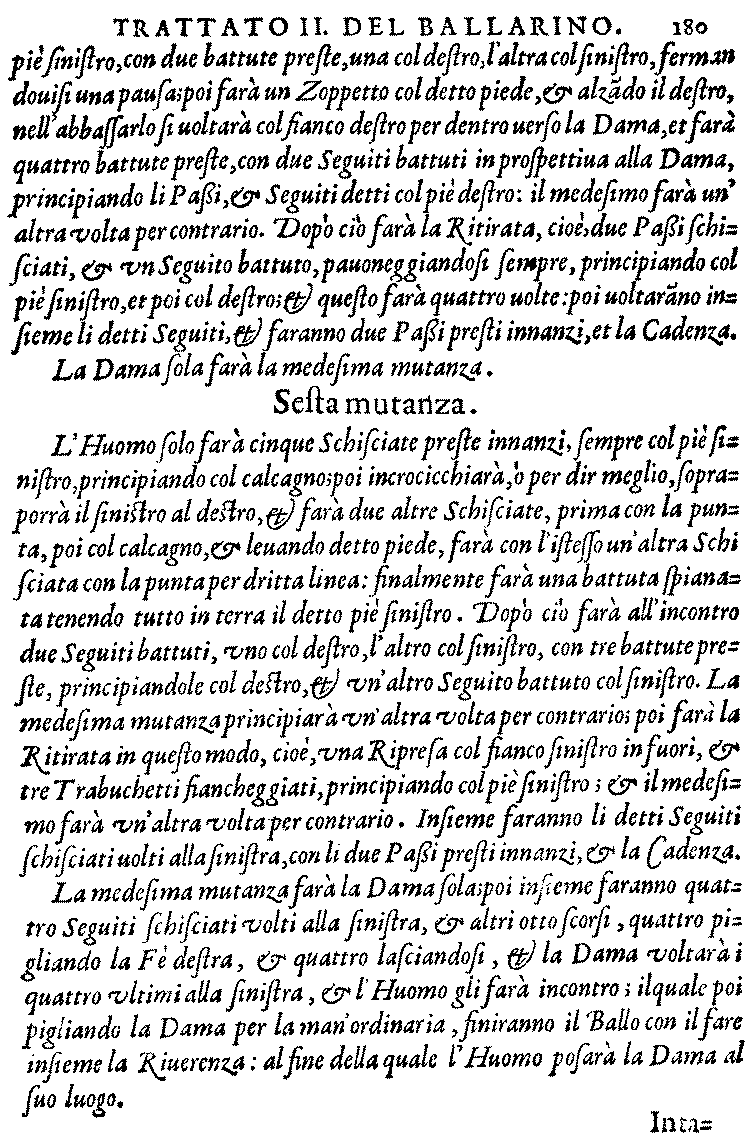 TRATTATO II. DEL BALLARINO. 180
piè ſiniſtro, con due battute preſte, una col deſtro, l'altra col ſiniſtro, ferman
douiſi una pauſa; poi farà un Zoppetto col detto piede, & alzãdo il deſtro,
nell'abbaſſarlo ſi uoltarà col fianco deſtro per dentro uerſo la Dama, et farà
quattro battute preſte, con due Seguiti battuti in proſpettiua alla Dama,
principiando li Paſſi, & Seguiti detti col piè deſtro: il medeſimo farà un'
altra volta per contrario. Dopò ciò farà la Ritirata, cioè, due Paſſi ſchi=
ſciati, & vn Seguito battuto, pauoneggiandoſi ſempre, principiando col
piè ſiniſtro, et poi col deſtro; & queſto farà quattro uolte: poi uoltarãno in=
ſieme li detti Seguiti, & faranno due Paſſi preſti innanzi, et la Cadenza.
La Dama ſola farà la medeſima mutanza.
Seſta mutanza.
L'Huomo ſolo farà cinque Schiſciate preſte innanzi, ſempre col piè ſi=
niſtro, principiando col calcagno; poi incrocicchiarà, ò per dir meglio, ſopra=
porrà il ſiniſtro al deſtro, & farà due altre Schiſciate, prima con la pun=
ta, poi col calcagno, & leuando detto piede, farà con l'iſteſſo un'altra Schi
ſciata con la punta per dritta linea: finalmente farà una battuta ſpiana=
ta tenendo tutto in terra il detto piè ſiniſtro. Dopò ciò farà all'incontro
due Seguiti battuti, vno col deſtro, l'altro col ſiniſtro, con tre battute pre=
ſte, principiandole col deſtro, & vn'altro Seguito battuto col ſiniſtro. La
medeſima mutanza principiarà vn'altra volta per contrario; poi farà la
Ritirata in queſto modo, cioè, vna Ripreſa col fianco ſiniſtro in fuori, &
tre Trabuchetti fiancheggiati, principiando col piè ſiniſtro; & il medeſi=
mo farà vn'altra volta per contrario. Inſieme faranno li detti Seguiti
ſchiſciati uolti alla ſiniſtra, con li due Paſſi preſti innanzi, & la Cadenza.
La medeſima mutanza farà la Dama ſola; poi inſieme faranno quat=
tro Seguiti ſchiſciati volti alla ſiniſtra, & altri otto ſcorſi, quattro pi=
gliando la Fè deſtra, & quattro laſciandoſi, & la Dama voltarà i
quattro vltimi alla ſiniſtra, & l'Huomo gli farà incontro; ilquale poi
pigliando la Dama per la man'ordinaria, finiranno il Ballo con il fare
inſieme la Riuerenza: al fine della quale l'Huomo poſarà la Dama al
ſuo luogo.
Inta=